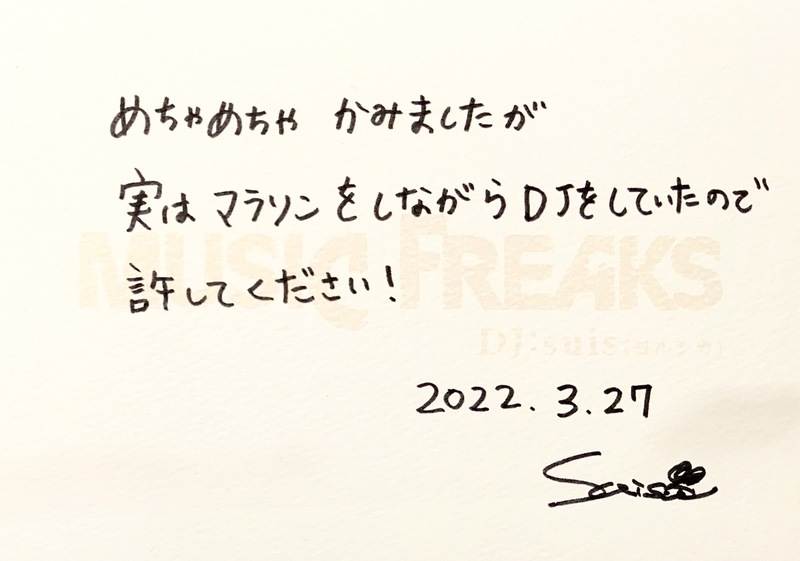 めちゃめちゃ かみましたが
実は マラソンをしながらDJをしていたので
許してください!
MUSIQ FREAKS
DJ:suis(ヨルシカ)
2022.3.27
Suis